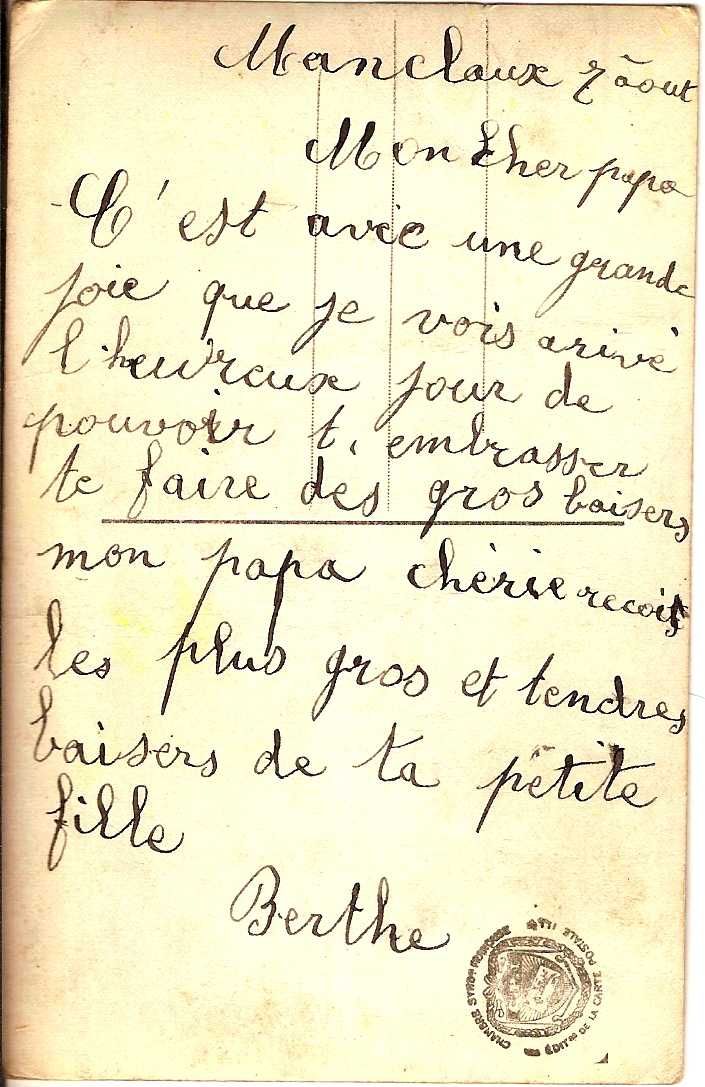 Manclaux 7 âout
Mon Cher papa
C'est avec une grande
joie que je vois arivé
l'heureux jour de
pouvoir t, embrasser
te faire des gros baisers
mon papa chérie recois
les plus gros et tendres
baisers de ta petite
fille
Berthe
CHAMBRE SYND FRANÇAISE
DES ÉDIT DE LA CARTE POSTALE ILL